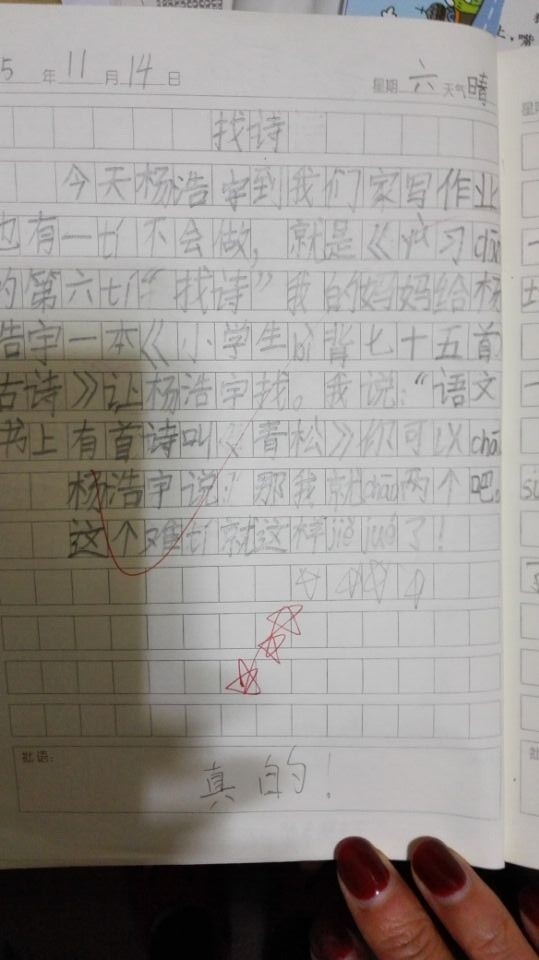 5年11月14日 星期六 天气晴
找诗
今天杨浩宇到我们家写作业
也有一tí不会做，就是《 习cāo
的第六tí“找诗”我的妈妈给杨
浩宇一本《小学生bì背七十五首
古诗》让杨浩宇找。我说：“语文
书上有首诗叫《青松》你可以chāo
杨浩宇说：“那我就chāo两个吧。
这个难tí就这样jiě jué了！
批语：
真的！